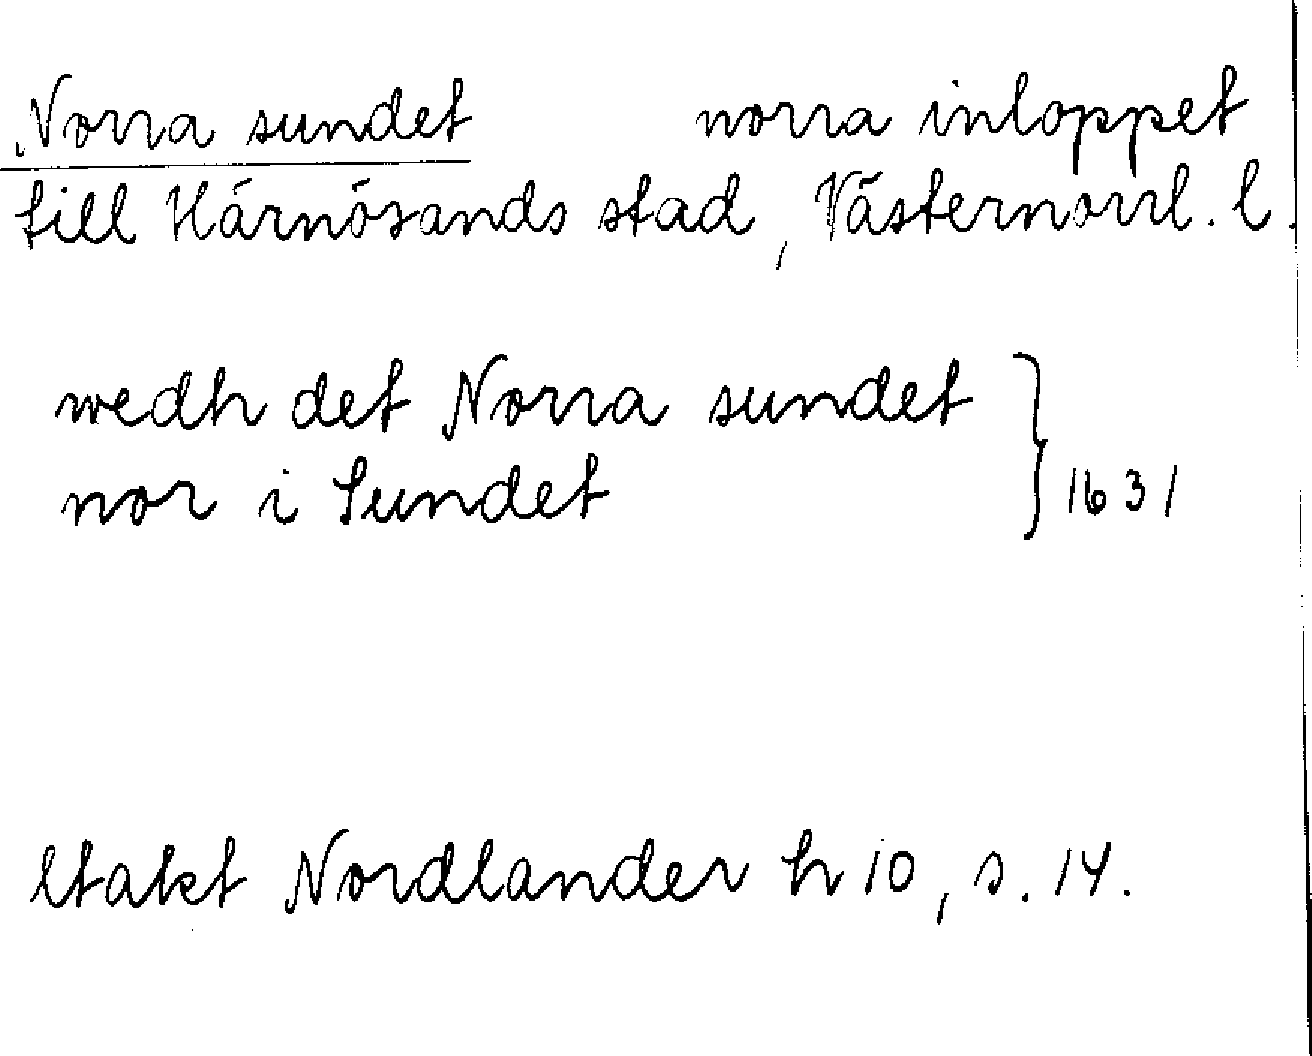 Norra sundet norra inloppet
till Härnösands stad, Västernorrl. l.
wedh det Norra sundet
nor i Sundet } 1631
Utakt Nordlander h 10, s. 14.